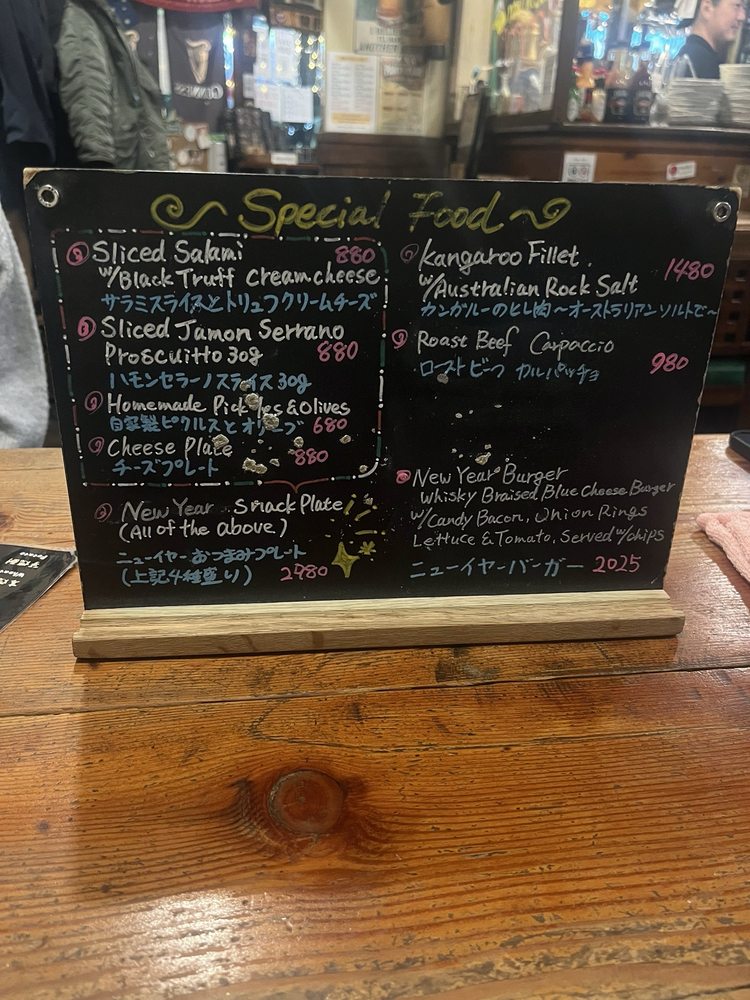 GUINNESS
Special Food
Sliced Salami 880
w/Black Truff Creamcheese
サラミスライスとトリュフクリームチーズ
Sliced Jamon Serrano
Proscuitto 30g 880
ハモンセラーノスライス 30g
Homemade Pickles & Olives
自家製ピクルスとオリーブ 680
Cheese Plate
チーズプレート 880
New Year Snack Plate
(All of the above)
ニューイヤーおつまみプレート
(上記4種盛り) 2480
Kangaroo Fillet.
w/Australian Rock Salt 1480
カンガルーのヒレ肉～オーストラリアンソルトで～
Roast Beef Carpaccio
ローストビーフ カルパッチョ 980
New Year Burger
Whisky Braised Blue Cheese Burger
w/Candy Bacon, Onion Rings
Lettuce & Tomato, Served w/chips
ニューイヤーバーガー 2025